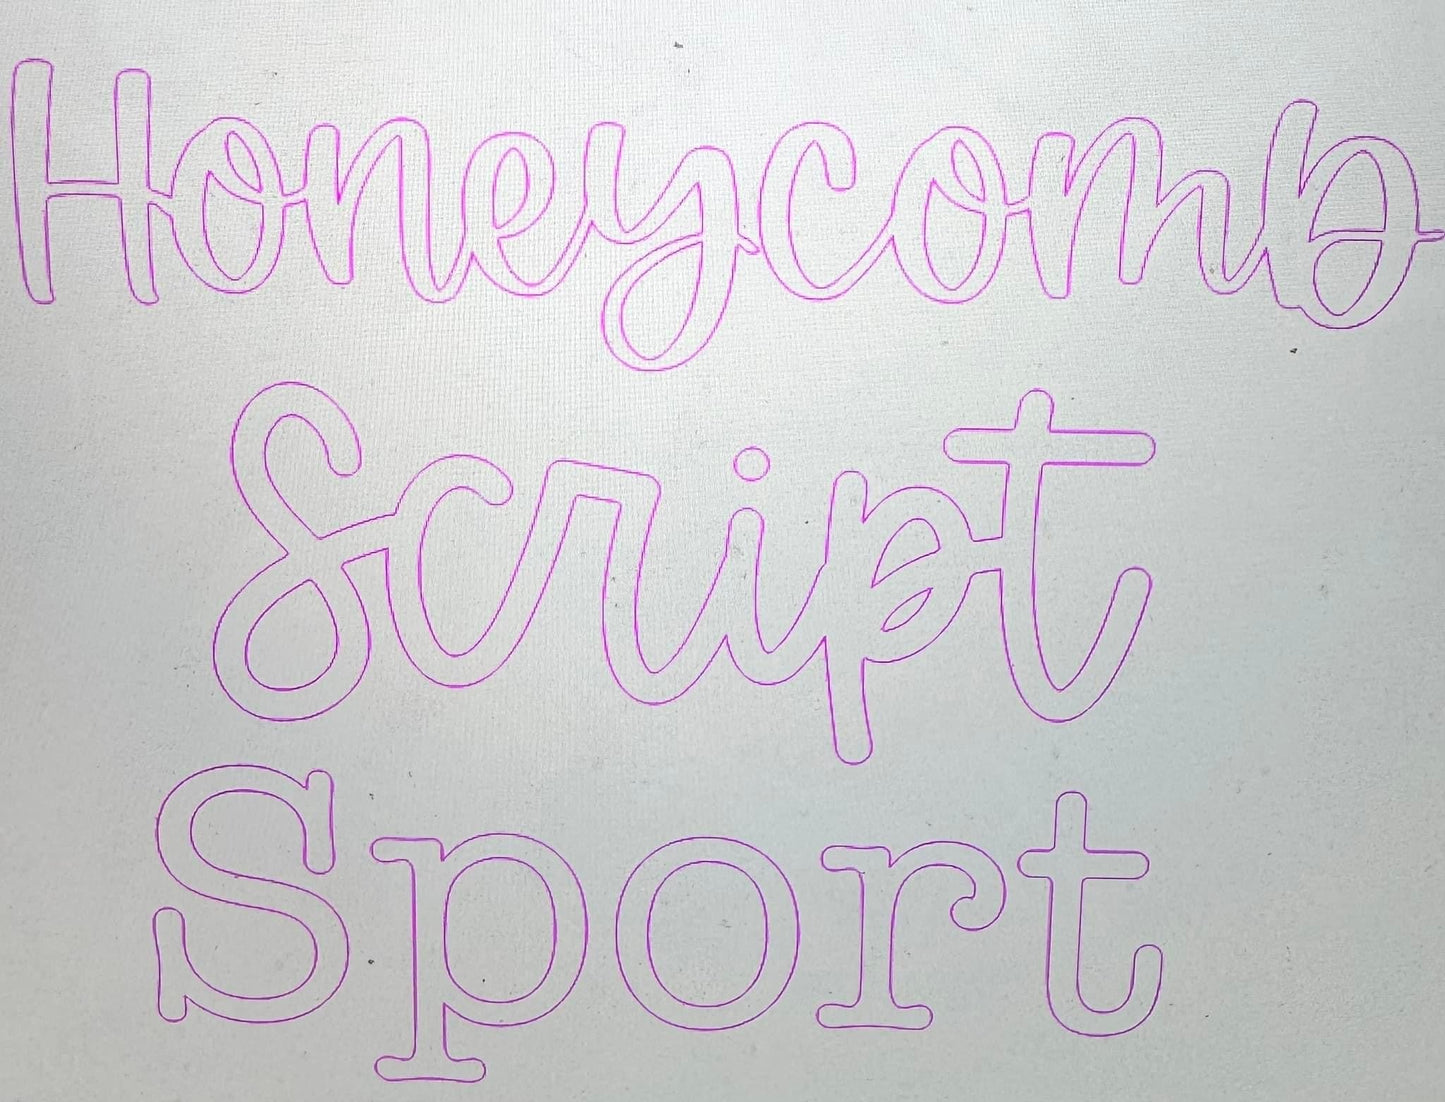 Honeycomb
Script
Sport